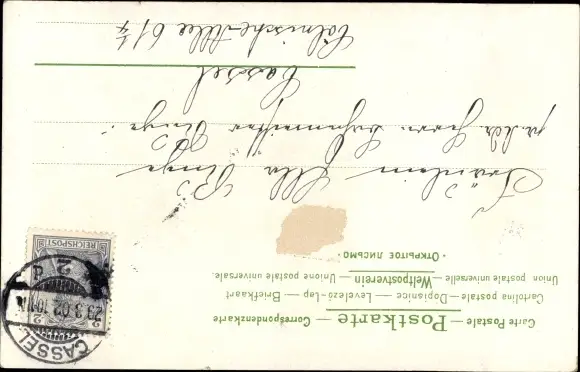 Carte Postale — Postkarte — Correspondenzkarte
Cartolina postale — Dopisnice — Levelező-Lap — Briefkaart
Union postale universelle — Weltpostverein — Unione postale universale.
· ОТКРЫТОЕ ПИСЬМО ·
REICHSPOST
2
2
CASSEL
23.3.02
Fräulein Ella
p. Adr. Herrn
Cassel
Cölnische Allee 61 1/4